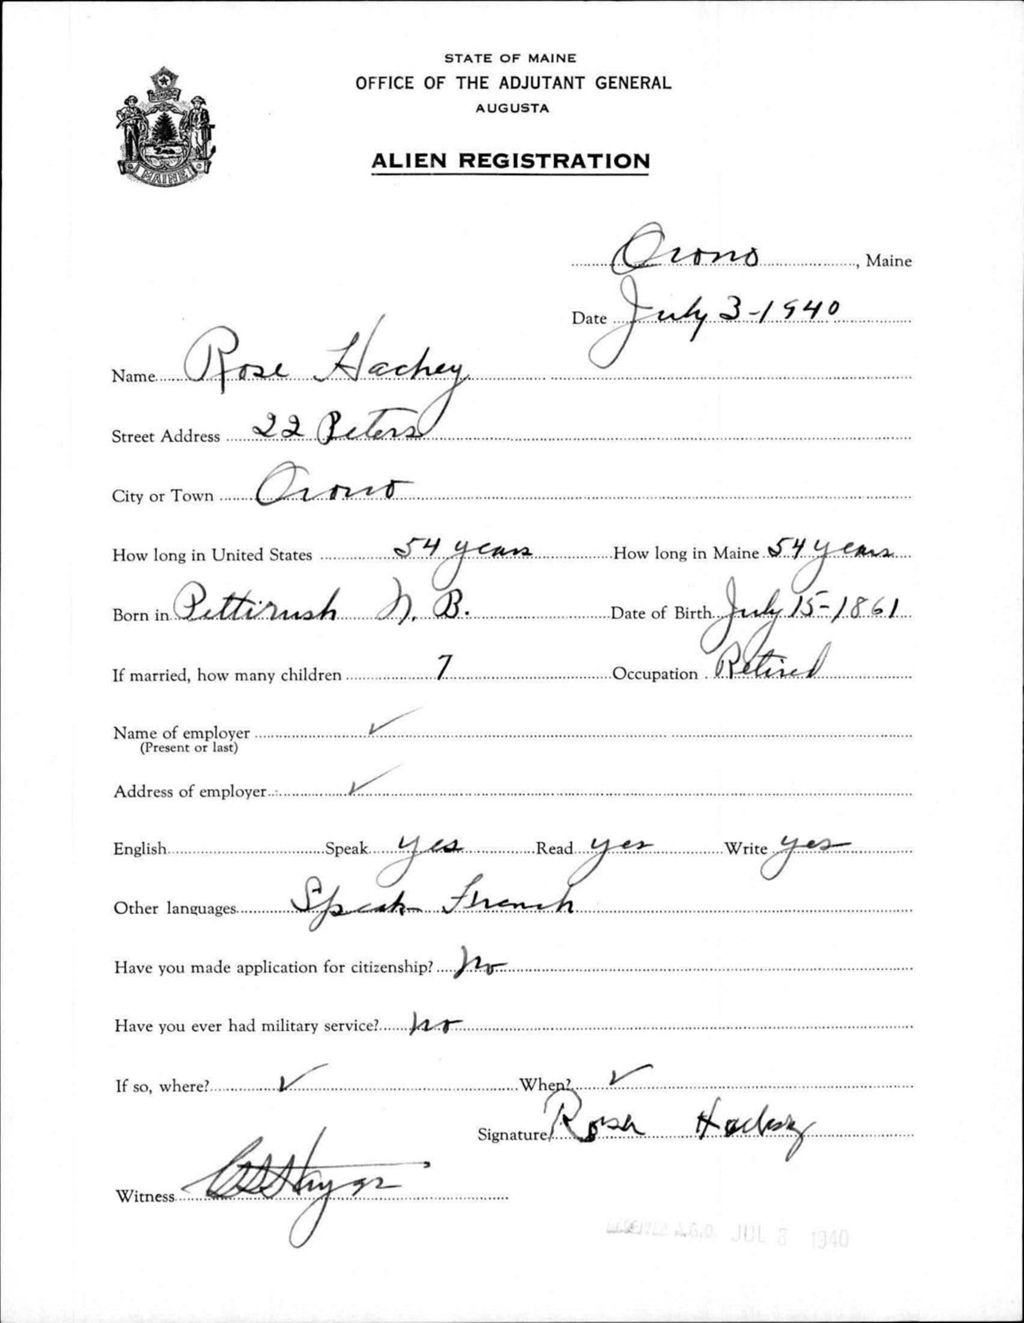 STATE OF MAINE
OFFICE OF THE ADJUTANT GENERAL
AUGUSTA
ALIEN REGISTRATION
MAINE
Orono, Maine
Date July 3-1940
Name Rose Hachey
Street Address 22 Peters
City or Town Orono
How long in United States 54 years How long in Maine 54 years
Born in Pettirush N. B. Date of Birth July 15-1861
If married, how many children 7 Occupation Retired
Name of employer ✓
(Present or last)
Address of employer ✓
English Speak yes Read yes Write yes
Other languages Speak French
Have you made application for citizenship? no
Have you ever had military service? no
If so, where? ✓ When? ✓
Signature Rose Hachey
Witness
RECEIVED A.G.O. JUL 8 1940